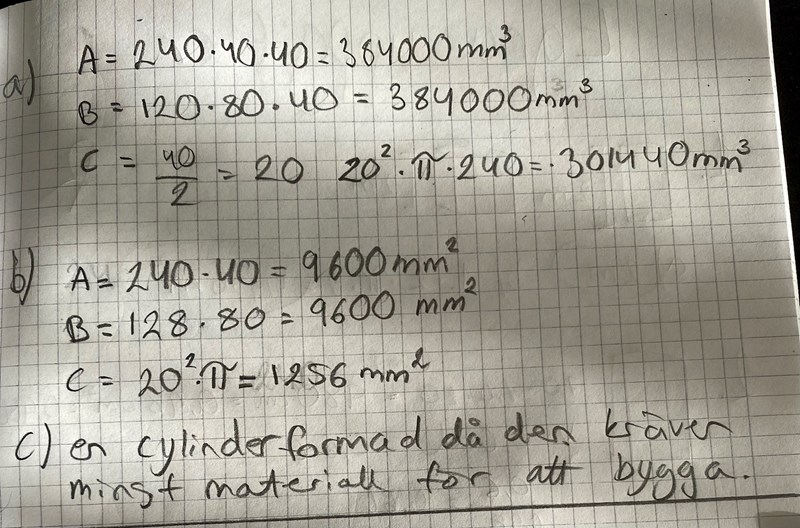 a) A = 240·40·40 = 384000mm³
B = 120·80·40 = 384000mm³
C = 40/2 = 20 20²·π·240 = 301440mm³
b) A = 240·40 = 9600mm²
B = 128·80 = 9600 mm²
C = 20²·π = 1256 mm²
c) en cylinderformad då den kräver
minst materiall for att bygga.